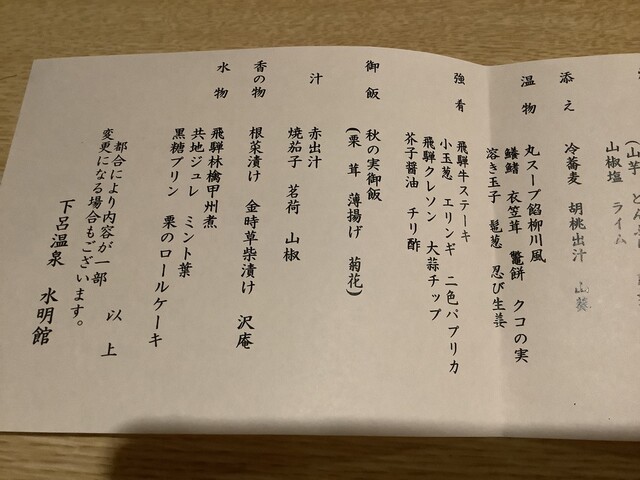 (山芋
山椒塩 ライム
添え
冷蕎麦 胡桃出汁 山葵
温物
丸スープ餡柳川風
鱶鰭 衣笠茸 鼈餅 クコの実
溶き玉子 髭葱 忍び生姜
強肴
飛騨牛ステーキ
小玉葱 エリンギ 二色パプリカ
飛騨クレソン 大蒜チップ
芥子醤油 チリ酢
御飯
秋の実御飯
(栗 茸 薄揚げ 菊花)
汁
赤出汁
焼茄子 茗荷 山椒
香の物
根菜漬け 金時草柴漬け 沢庵
水物
飛騨林檎甲州煮
共地ジュレ ミント葉
黒糖プリン 栗のロールケーキ
以上
都合により内容が一部
変更になる場合もございます。
下呂温泉 水明館